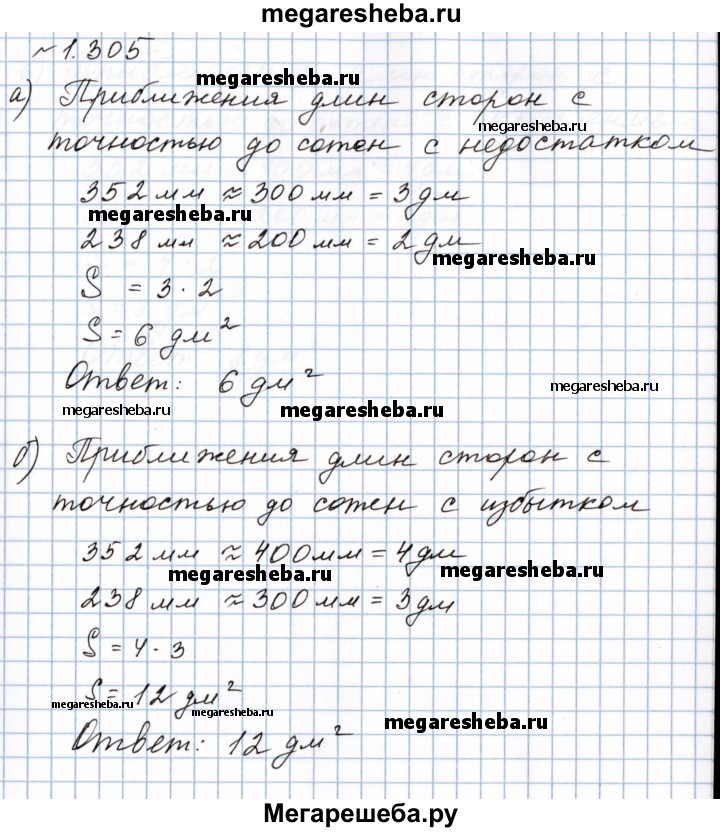 megaresheba.ru
~ 1.305
megaresheba.ru
а) Приближения длин сторон с
megaresheba.ru
точностью до сотен с недостатком
352 мм ≈ 300 мм = 3 дм
megaresheba.ru
238 мм ≈ 200 мм = 2 дм
megaresheba.ru
S = 3 · 2
S = 6 дм²
Ответ: 6 дм²
megaresheba.ru
megaresheba.ru
megaresheba.ru
б) Приближения длин сторон с
точностью до сотен с избытком
352 мм ≈ 400 мм = 4 дм
megaresheba.ru
megaresheba.ru
238 мм ≈ 300 мм = 3 дм
S = 4 · 3
S = 12 дм²
megaresheba.ru
megaresheba.ru
megaresheba.ru
Ответ: 12 дм²
Мегарешеба.ру